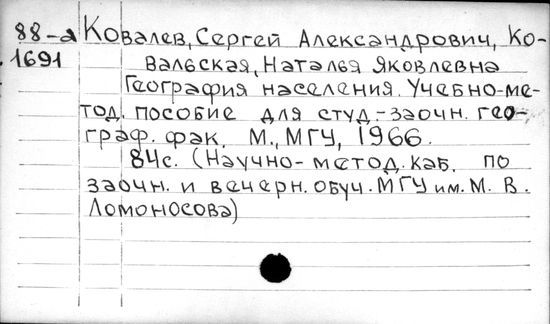 88-а Ковалев, Сергей Александрович, Ко-
1691 вальская, Наталья Яковлевна
География населения. Учебно-ме-
тод. пособие для студ.-заочн. гео-
граф. фак. М., МГУ, 1966.
84с. (Научно-метод. каб. по
заочн. и вечерн. обуч. МГУ им. М. В.
Ломоносова)